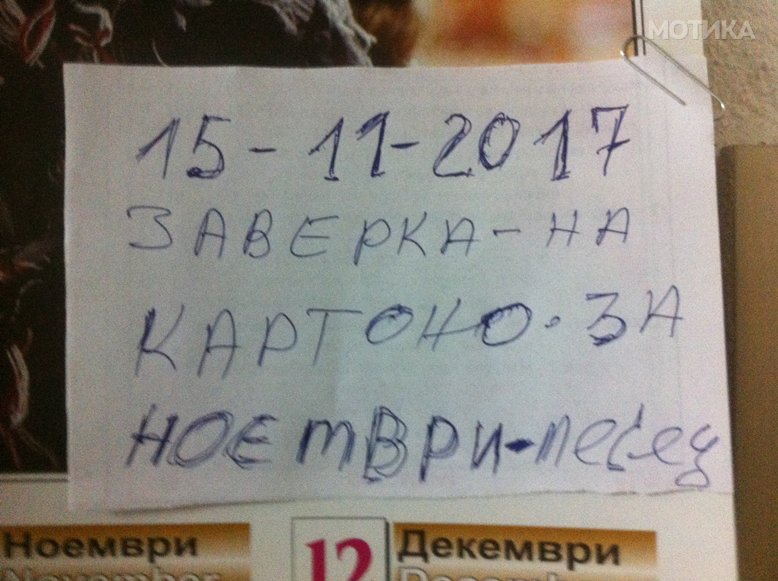 МОТИКА
15-11-2017
ЗАВЕРКА-НА
КАРТОНО. ЗА
НОЕМВРИ-песец
Ноември 12 Декември
November